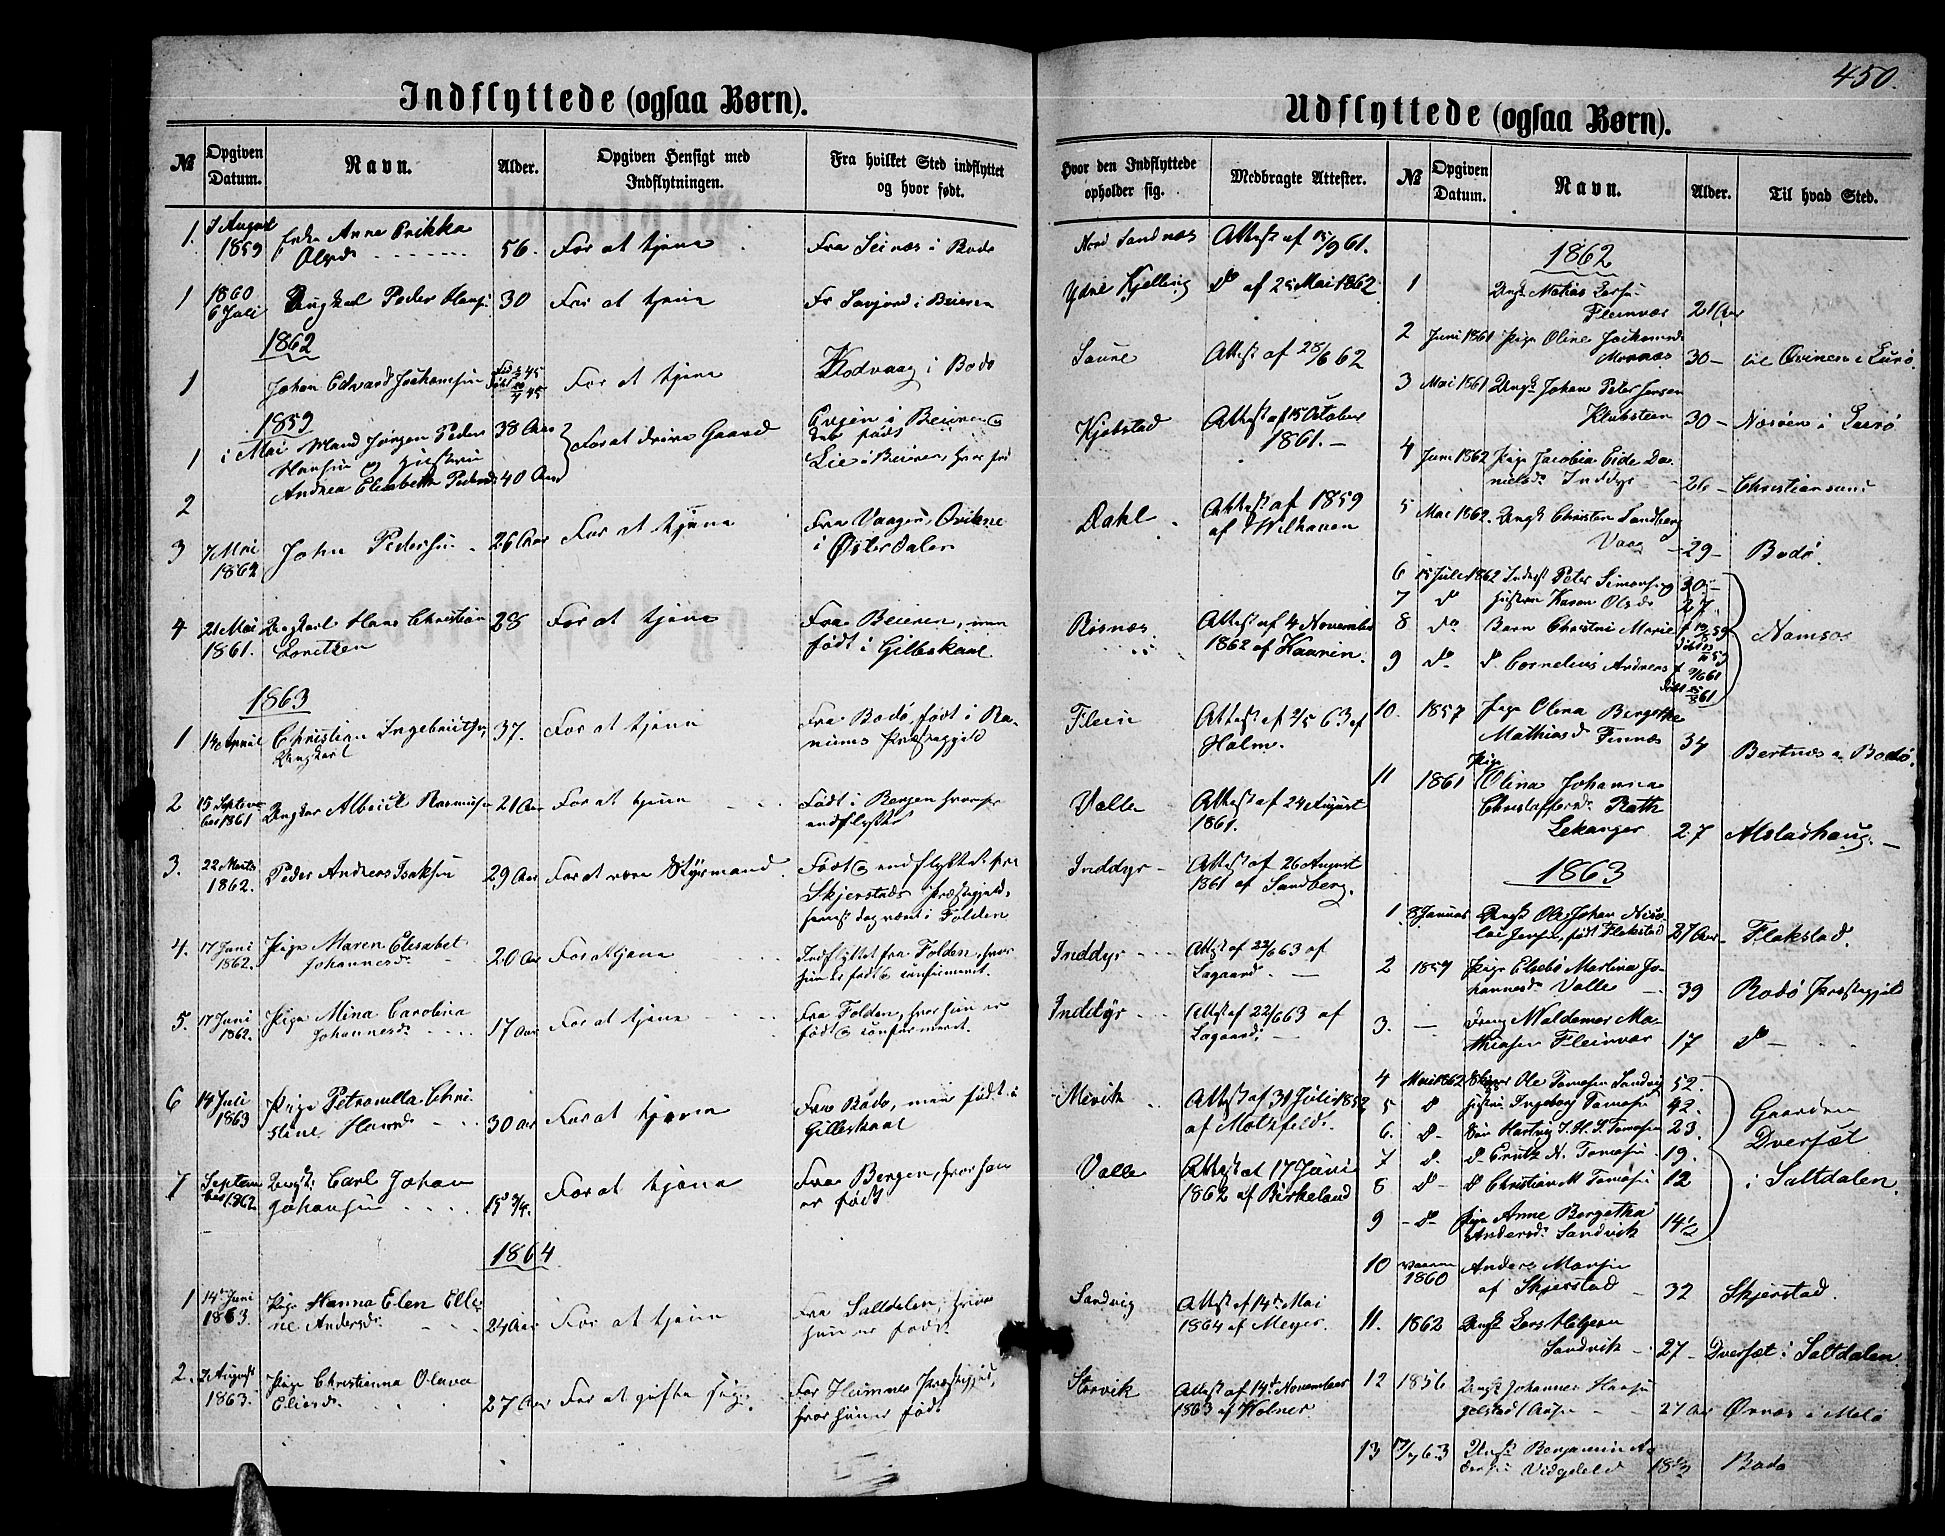 450.
Indflyttede (ogsaa Børn).
№ Opgiven Datum. Navn. Alder. Opgiven Hensigt med Indflytningen. Fra hvilket Sted indflyttet og hvor født.
1. August 1859 Anna Olsd. 56. For at tjene Fra Seines i Bodø
1 1860 6 Juli Ungkarl Peder Hans 30 For at tjene Fr i Beieren
1862
1 Johan Edvard Joakimsen For at tjene i Bodø
1859
1 i Mai Mand Jørgen Peder Hansen og 38 Aar For at drive Gaard Evjen i Beieren
2 Andrea Elisabeth Pedersd 40 Aar Lie i Beieren, hvor
3 7 Mai John Pedersen 26 Aar For at tjene Fra Vaagen,
i Østerdalen
4 21 Mai 1861. Ungkarl Hans Christian Loretzen 28 For at tjene Fra Beieren, men
født i Gilleskaal
1863
1 Christian Ingebrigtsen Ungkarl 37. For at tjene Fra Bodø, født i Ranenes Præstegjeld
2 15 September 1861 Ungkar Rasmusen 21 Aar For at tjene Født i Bergen hvorfra indflyttet
3. 22 Marts 1862. Peder Andreas Isaksen 29 Aar For at være Styrmand. Født & indflyttet fra
Skjerstads Præstegjeld,
i Folden
4. 17 Juni 1862. Pige Maren Elisabet Johannesd. 20 Aar For at tjene Indflyttet fra Folden, hvor
hun er født & confirmeret.
5. 17 Juni 1862. Pige Mina Carolina Johannesd. 17 Aar For at tjene Fra Folden, hvor hun er
født & confirmeret.
6 14 Juli 1863 Pige Petronella Christine Hansd. 30 Aar For at tjene Fra Bodø, men født i
Gilleskaal
7 September 1862. Ungk: Carl Johan Johansen 15 3/4. For at tjene Fra Bergen, hvor han
er født
1864
1 14de Juni 1863. Pige Hanna Elen Elline Andersd. 24 Aar For at tjene Fra Saltdalen, hvor
hun er født.
2. August 1863. Pige Christianna Olava Eliasd. 27 Aar For at gifte sig. For Hemnes Præstegjeld,
hvor hun er født
Udflyttede (ogsaa Børn).
Hvor den Indflyttede opholder sig. Medbragte Attester. № Opgiven Datum. Navn. Alder. Til hvad Sted.
Nord Sandnæs Attest af 15/9 61.
Ydre Kjelling do af 25 Mai 1862
Saure Attest af 28/6 62
Kjøbstad Attest af 15 October
1861. –
Dahl Attest af 1859
af Welhaven
Røsnæs Attest af 4 November
1862 af Kaurin.
Flein Attest af 2/5 63 af
Holm.
Valle Attest af 24 August
1861.
Inddyr – Attest af 26 August
1861 af Sandberg.
Inddyr Attest af 22/6 63 af
Lagaard.
Inddyr Attest af 22/6 63 af
Lagaard.
Mevik Attest af 31 Juli 1852
af Motzfeldt.
Valle Attest af 17 Juni
1862 af Birkeland
Sandvig Attest af 14de Mai
1864 af Meyer.
Storvik Attest af 14de November
1863 af Holmer.
1862
1 Ungk Matias Larsen
Fleinvær 21 Aar
2 Juni 1861 Pige Oline Joakimsd
Mornæs 30 –
3 Mai 1861 Ungk Johan Peter Jensen
Klubsteen 30 –
4 Juni 1862 Pige Jacobia Eide Danielsd. Inddyr 26 – Christiansund
5 Mai 1862. Ungk Christen Sandberg
Vaag – 29 – Bodø.
6 15 Juli 1862 Inderst Peter Simonsen 30 –
7 do Hustru Karen Olsd 27.
8 do Barn Christine Marie
9 do do Cornelius Andreas
Namsos
10. 1857 Pige Olena Bergithe
Mathiasd Finnæs 34 Bertnæs i Bodø.
11 1861 Pige Olina Johanna
Christoffersd. Rath
Lekanger 27 Alstadhaug. –
1863
1 8 Januar Ungk Ole Johan Nicolai Jensen, født Flakstad 27 Aar Flakstad.
2 1857 Pige Elsebe Martina Johannesd. Valle – 39 Bodø Præstegjeld
3. – Dreng Waldemar Mathiasen Fleinvær 17 do –
4 Mai 1862 Ole Tomasen Sandvig 52.
5 do Hustru Ingeborg Tomasen 42.
6. do Søn Hartvig J. H. S. Tomasen 23.
7 do do Crutz N. Tomasen 19.
8 do do Christian M Tomasen 12
9 – do Pige Anne Bergetha
Andersd. Sandvik 14 1/2
Gaarden
Dverset
i Saltdalen.
10 1860 Anders Monsen
af Skjerstad – 32 Skjerstad.
11. 1862 Ungk Lars Helgesen
Sandvik – 27 – Dverset i Saltdalen
12 1856 Ungk Johannes Hansen 27 Aar Ørnæs i Melø
13 17/7 63 Ungk Benjamin 18 1/2 Bodø